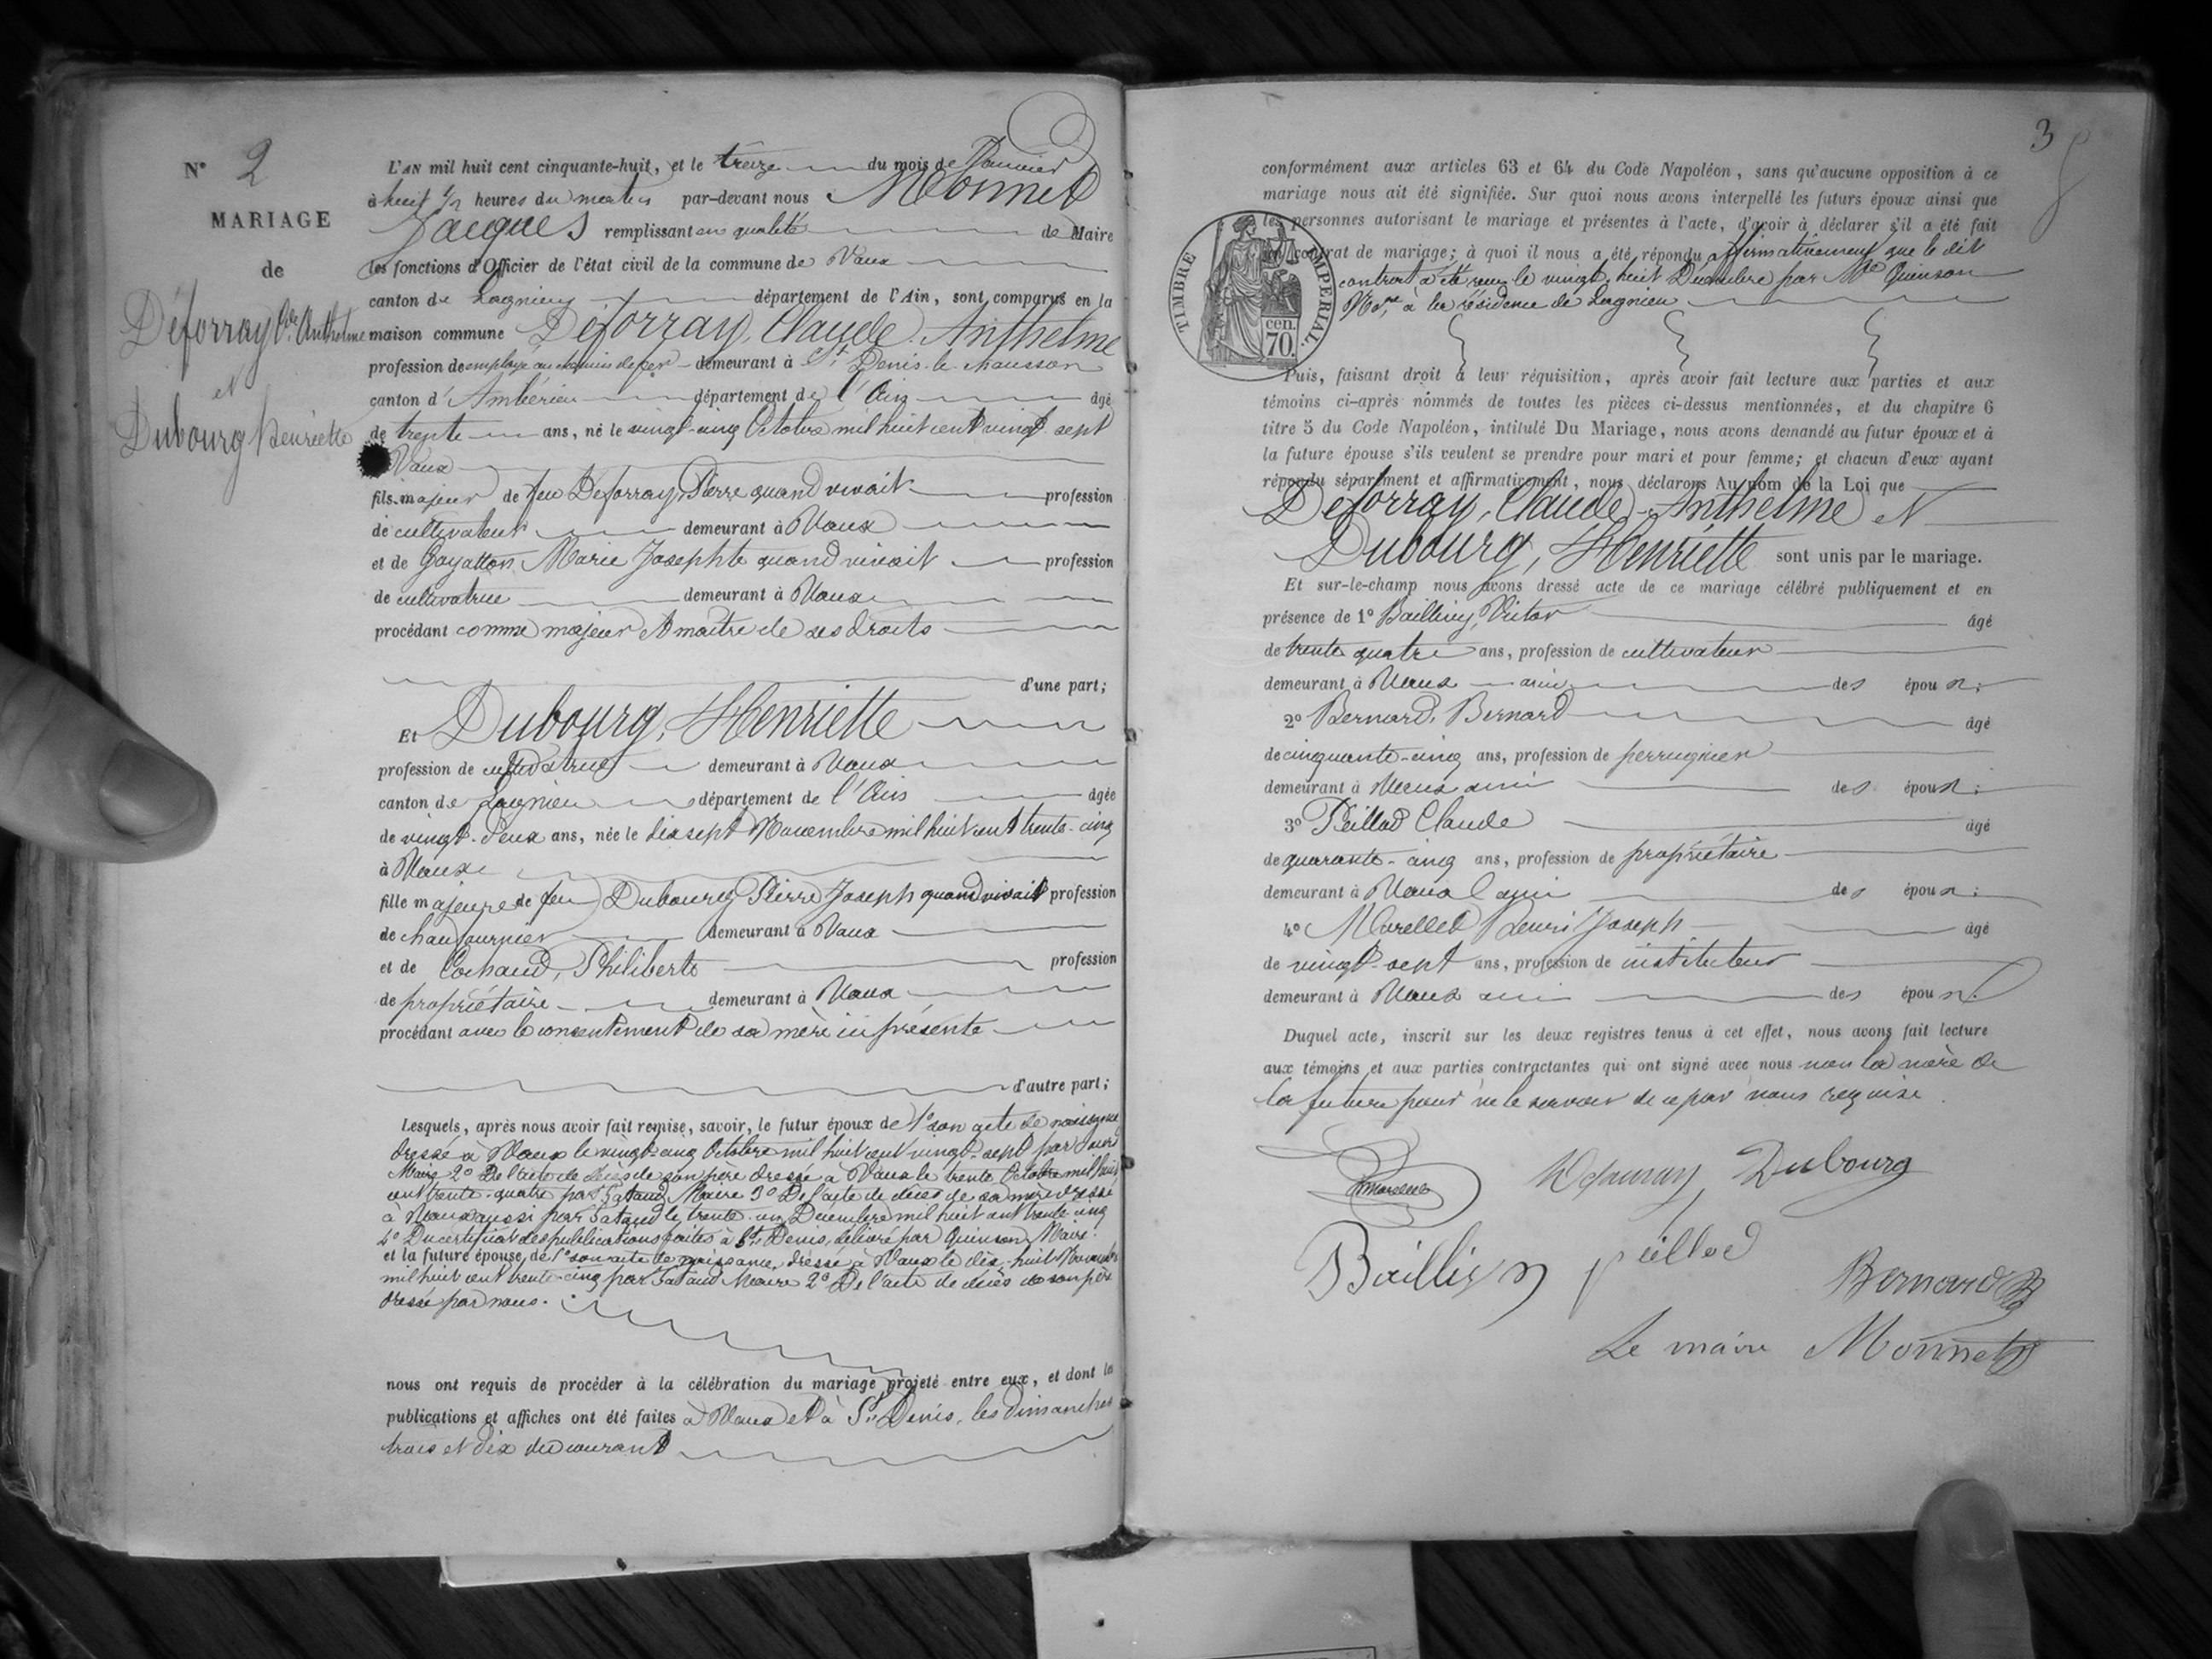 N° 2
MARIAGE
de
Déforray Cde Anthelme
et
Dubourg Henriette
L'AN mil huit cent cinquante-huit, et le treize du mois de Janvier
à huit 1/2 heures du matin par-devant nous Monnet
Jacques remplissant en qualité de Maire
les fonctions d'Officier de l'état civil de la commune de Vaux
canton de Lagnieu département de l'Ain, sont comparus en la
maison commune Déforray, Claude Anthelme
profession de employé au chemin de fer demeurant à St Denis-le-chausson
canton d'Ambérieu département de l'Ain âgé
de trente ans, né le vingt-cinq Octobre mil huit cent vingt-sept
Vaux
fils majeur de feu Déforray Pierre quand vivait profession
de cultivateur demeurant à Vaux
et de Gayatton Marie Josephte quand vivait profession
de cultivatrice demeurant à Vaux
procédant comme majeur et maître de ses droits
d'une part;
Et Dubourg, Henriette
profession de cultivatrice demeurant à Vaux
canton de Lagnieu département de l'Ain âgée
de vingt-deux ans, née le dix sept Novembre mil huit cent trente-cinq
à Vaux
fille majeure de feu Dubourg Pierre Joseph quand vivait profession
de chaufournier demeurant à Vaux
et de Cochaud, Philiberte profession
de propriétaire demeurant à Vaux
procédant avec le consentement de sa mère ici présente
d'autre part;
Lesquels, après nous avoir fait remise, savoir, le futur époux de 1° son acte de naissance
dressé à Vaux le vingt-cinq Octobre mil huit cent vingt-sept par
Maire 2° De l'acte de décès de son père dressé à Vaux le trente Octobre mil huit
cent trente-quatre par Fataud Maire 3° De l'acte de décès de sa mère dressé
à Vaux aussi par Fataud le trente-un Décembre mil huit cent trente-cinq
4° Du certificat des publications faites à St Denis, délivré par Quinson Maire.
et la future épouse, de 1° son acte de naissance dressé à Vaux le dix-huit Novembre
mil huit cent trente-cinq par Fataud Maire 2° De l'acte de décès de son père
dressé par nous.
nous ont requis de procéder à la célébration du mariage projeté entre eux, et dont les
publications et affiches ont été faites à Vaux et à St Denis, les dimanches
trois et dix du courant
3
conformément aux articles 63 et 64 du Code Napoléon, sans qu'aucune opposition à ce
mariage nous ait été signifiée. Sur quoi nous avons interpellé les futurs époux ainsi que
les personnes autorisant le mariage et présentes à l'acte, d'avoir à déclarer s'il a été fait
contrat de mariage; à quoi il nous a été répondu affirmativement que le dit
contrat a été reçu le vingt huit Décembre par Me Quinson
Nore à la résidence de Lagnieu
TIMBRE IMPERIAL.
70 cen.
Puis, faisant droit à leur réquisition, après avoir fait lecture aux parties et aux
témoins ci-après nommés de toutes les pièces ci-dessus mentionnées, et du chapitre 6
titre 5 du Code Napoléon, intitulé Du Mariage, nous avons demandé au futur époux et à
la future épouse s'ils veulent se prendre pour mari et pour femme; et chacun d'eux ayant
répondu séparément et affirmativement, nous déclarons Au nom de la Loi que
Déforray, Claude-Anthelme et
Dubourg, Henriette sont unis par le mariage.
Et sur-le-champ nous avons dressé acte de ce mariage célébré publiquement et en
présence de 1° Baillivy, Victor âgé
de trente quatre ans, profession de cultivateur
demeurant à Vaux ami des époux;
2° Bernard, Bernard âgé
de cinquante-cinq ans, profession de perruquier
demeurant à Vaux ami des époux;
3° Peillod Claude âgé
de quarante-cinq ans, profession de propriétaire
demeurant à Vaux ami des époux;
4° Marellet Henri Joseph âgé
de vingt-sept ans, profession de instituteur
demeurant à Vaux ami des époux.
Duquel acte, inscrit sur les deux registres tenus à cet effet, nous avons fait lecture
aux témoins et aux parties contractantes qui ont signé avec nous non la mère de
la future pour ne le savoir de ce par nous requise.
Defauray Dubourg
peillod
Bernard B
Le maire Monnet